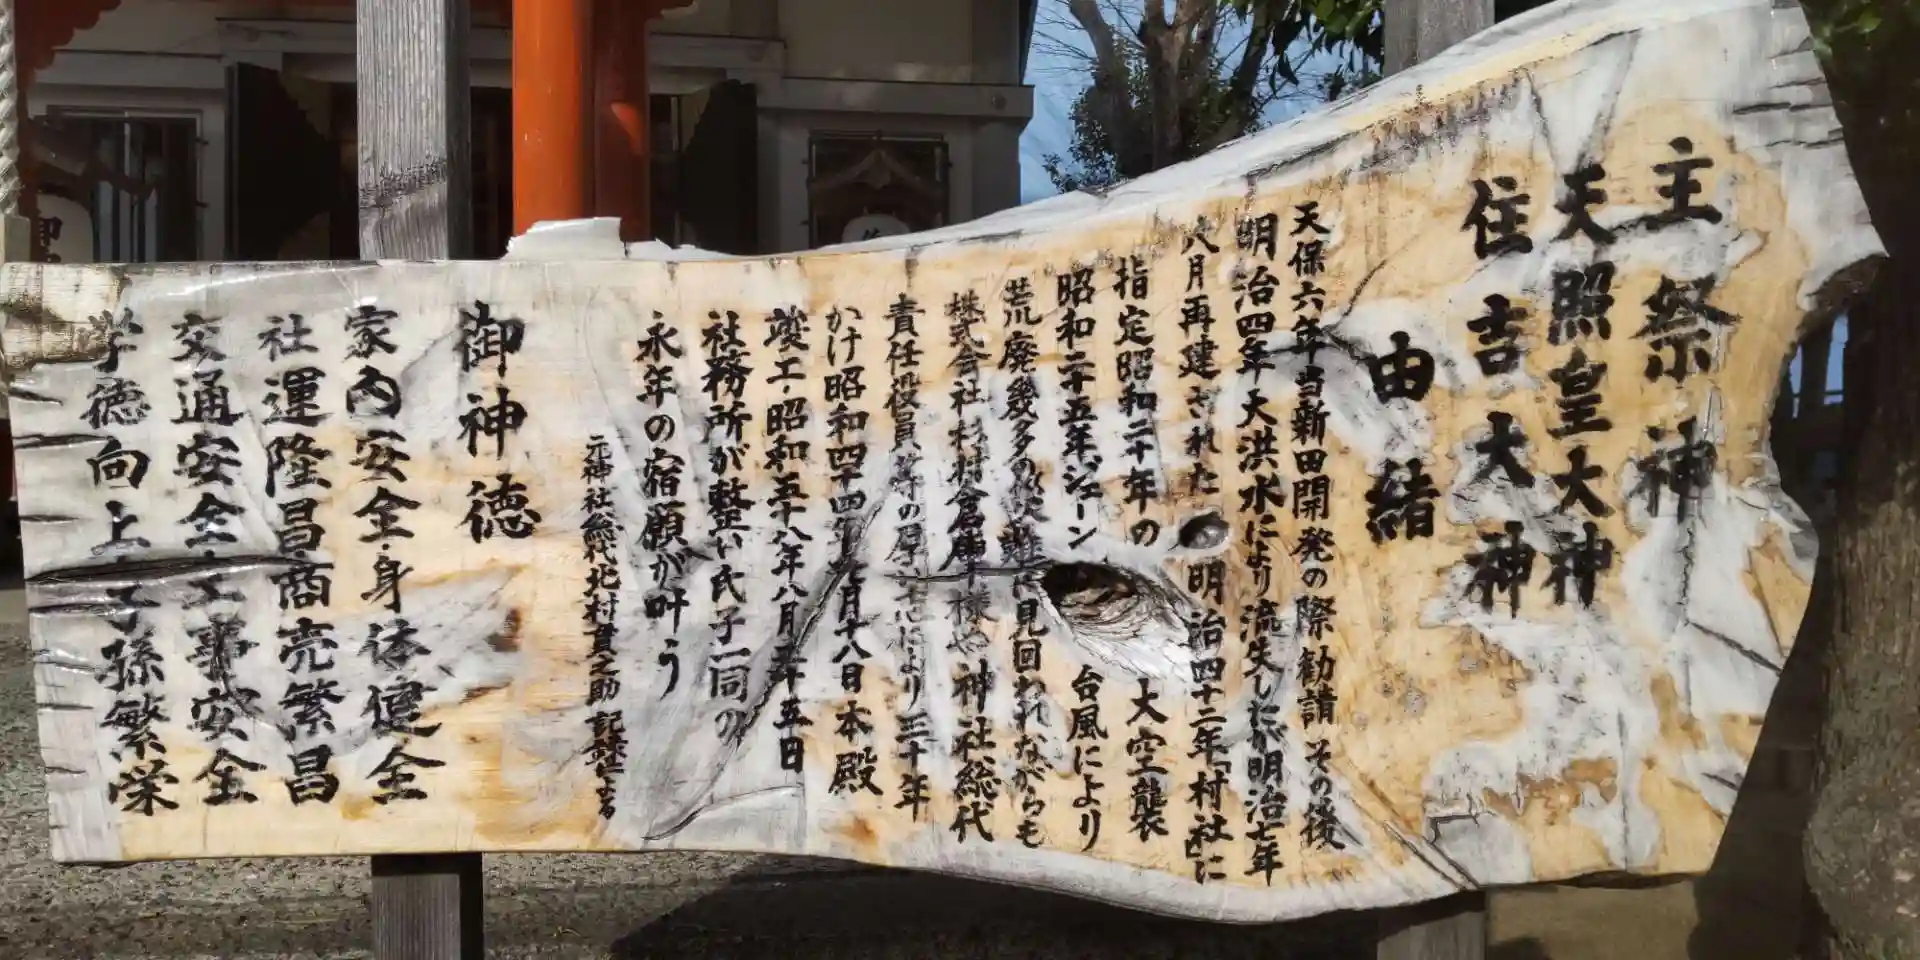 主祭神
天照皇大神
住吉大神
由緒
天保六年当新田開発の際勧請その後
明治四年大洪水により流失したが明治七年
八月再建された 明治四十二年「村社」に
指定昭和二十年の 大空襲
昭和二十五年、ジェーン 台風により
荒廃幾多の災難に見回われながらも
株式会社杉村倉庫様や神社総代
責任役員等の厚志により三十年
かけ昭和四十四年 月十八日本殿
竣工・昭和五十八年八月二年五日
社務所が整い氏子一同の
永年の宿願が叶う
元神社総代北村真之助 記録による
御神徳
家内安全・身体健全
社運隆昌商売繁昌
交通安全工事安全
学徳向上子孫繁栄